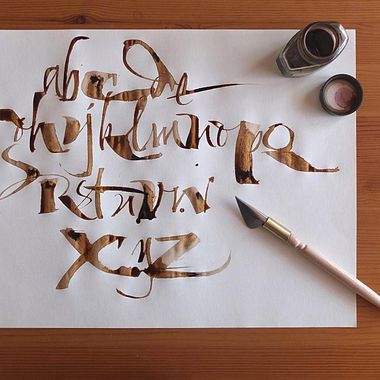 abcde
ghijklmnopq
rstuvw
xyz